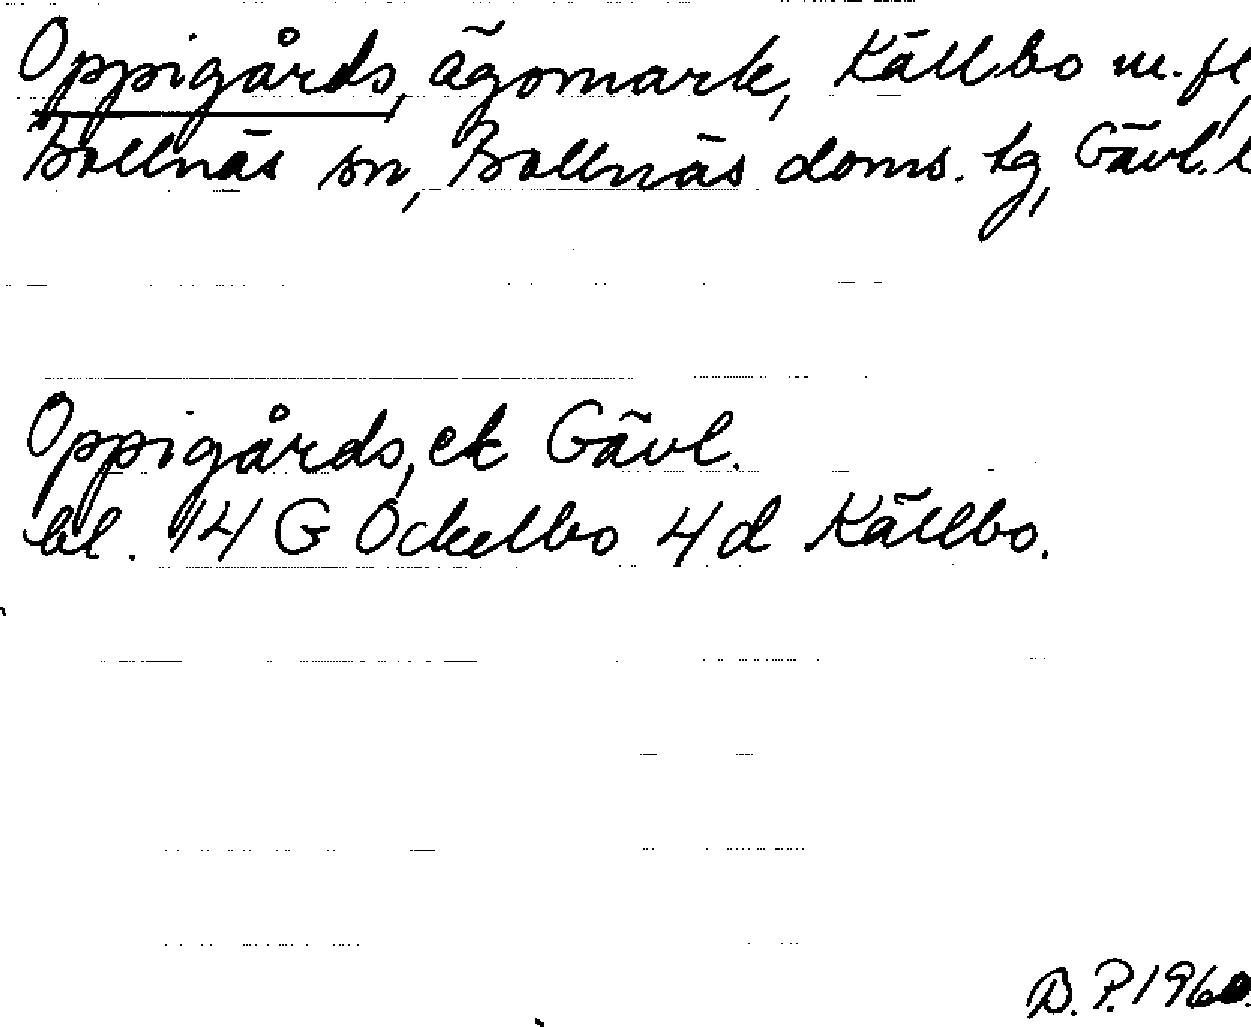 Oppigårds, ägomark, Källbo m. fl,
Bollnäs sn, Bollnäs doms. tg, Gävl. l
Oppigårds, ek Gävl.
bl. 14 G Ockelbo 4 d Källbo.
B. P. 1960.